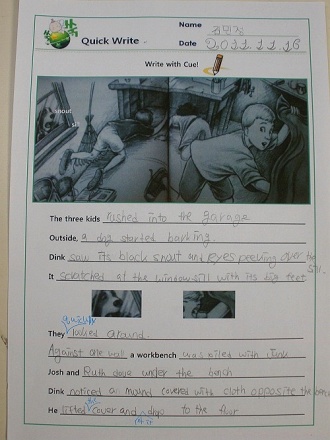 Quick Write
Name 김민정
Date 2011.11.16
Write with Cue!
snout
sill
The three kids rushed into the garage
Outside, a dog started barking.
Dink saw its black snout and eyes peeking over the sill.
It scratched at the window sill with its big feet
quickly
They looked around.
Against one wall a workbench was piled with junk
Josh and Ruth dove under the bench
Dink noticed a mound covered with cloth opposite the bench
the
He lifted cover and drop to the floor